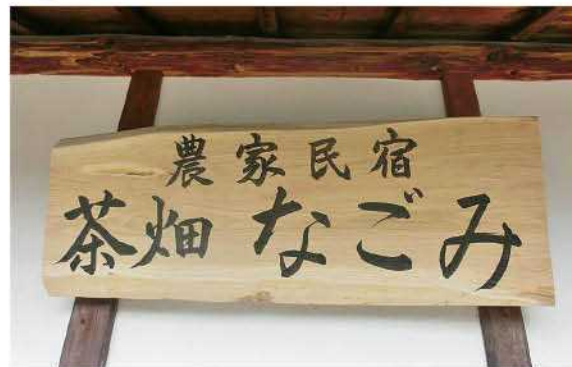 農家民宿
茶畑 なごみ